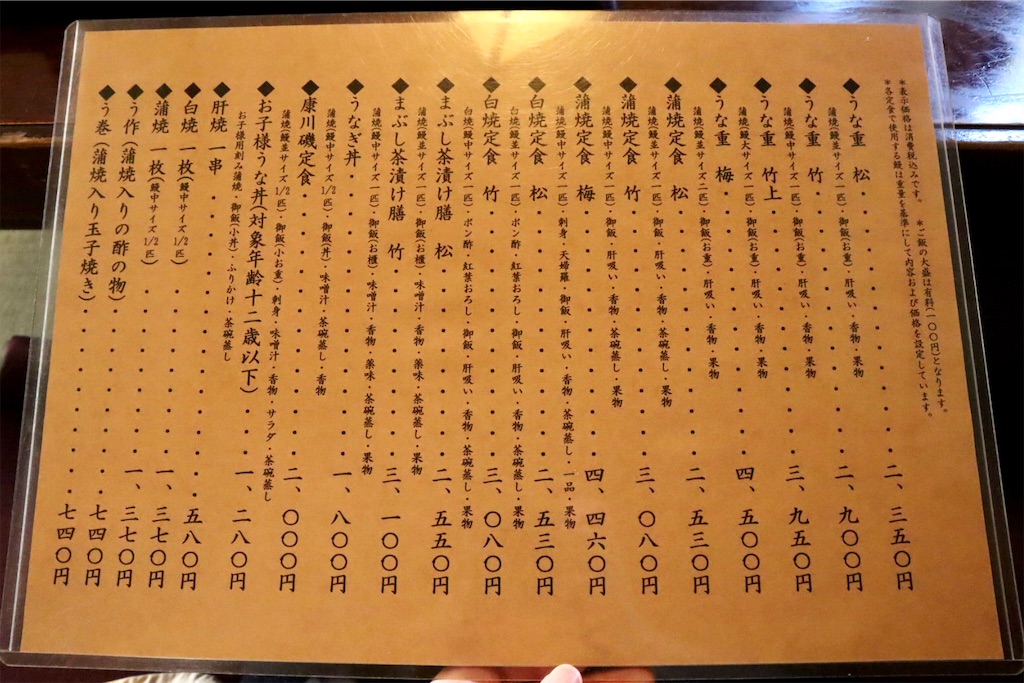 *表示価格は消費税込みです。　*ご飯の大盛は有料(一〇〇円)となります。
*各定食で使用する鰻は重量を基準にして内容および価格を設定しています。
◆うな重　松・・・・・・・・二、三五〇円
蒲焼(鰻並サイズ一匹)・御飯(お重)・肝吸い・香物・果物
◆うな重　竹・・・・・・・・二、九〇〇円
蒲焼(鰻中サイズ一匹)・御飯(お重)・肝吸い・香物・果物
◆うな重　竹上・・・・・・・・三、九五〇円
蒲焼(鰻大サイズ一匹)・御飯(お重)・肝吸い・香物・果物
◆うな重　梅・・・・・・・・四、五〇〇円
蒲焼(鰻並サイズ二匹)・御飯(お重)・肝吸い・香物・果物
◆蒲焼定食　松・・・・・・・・二、五三〇円
蒲焼(鰻並サイズ一匹)・御飯・肝吸い・香物・茶碗蒸し・果物
◆蒲焼定食　竹・・・・・・・・三、〇八〇円
蒲焼(鰻中サイズ一匹)・御飯・肝吸い・香物・茶碗蒸し・果物
◆蒲焼定食　梅・・・・・・・・四、四六〇円
蒲焼(鰻並サイズ一匹)・刺身・天婦羅・御飯・肝吸い・香物・茶碗蒸し・一品・果物
◆白焼定食　松・・・・・・・・二、五三〇円
白焼(鰻並サイズ一匹)・ポン酢・紅葉おろし・御飯・肝吸い・香物・茶碗蒸し・果物
◆白焼定食　竹・・・・・・・・三、〇八〇円
白焼(鰻中サイズ一匹)・ポン酢・紅葉おろし・御飯・肝吸い・香物・茶碗蒸し・果物
◆まぶし茶漬け膳　松・・・・・・・・二、五五〇円
蒲焼(鰻並サイズ一匹)・御飯(お櫃)・味噌汁・香物・薬味・茶碗蒸し・果物
◆まぶし茶漬け膳　竹・・・・・・・・三、一〇〇円
蒲焼(鰻中サイズ一匹)・御飯(お櫃)・味噌汁・香物・薬味・茶碗蒸し・果物
◆うなぎ丼・・・・・・・・一、八〇〇円
蒲焼(鰻中サイズ1/2匹)・御飯(丼)・味噌汁・茶碗蒸し・香物
◆康川磯定食・・・・・・・・二、〇〇〇円
蒲焼(鰻並サイズ1/2匹)・御飯(小お重)・刺身・味噌汁・香物・サラダ・茶碗蒸し
◆お子様うな丼(対象年齢十二歳以下)・・・一、二八〇円
お子様用刻み蒲焼・御飯(小丼)・ふりかけ・茶碗蒸し
◆肝焼　一串・・・・・・・・五八〇円
◆白焼　一枚(鰻中サイズ1/2匹)・・・・・・・・一、三七〇円
◆蒲焼　一枚(鰻中サイズ1/2匹)・・・・・・・・一、三七〇円
◆う作(蒲焼入りの酢の物)・・・・・・・・七四〇円
◆う巻(蒲焼入り玉子焼き)・・・・・・・・七四〇円